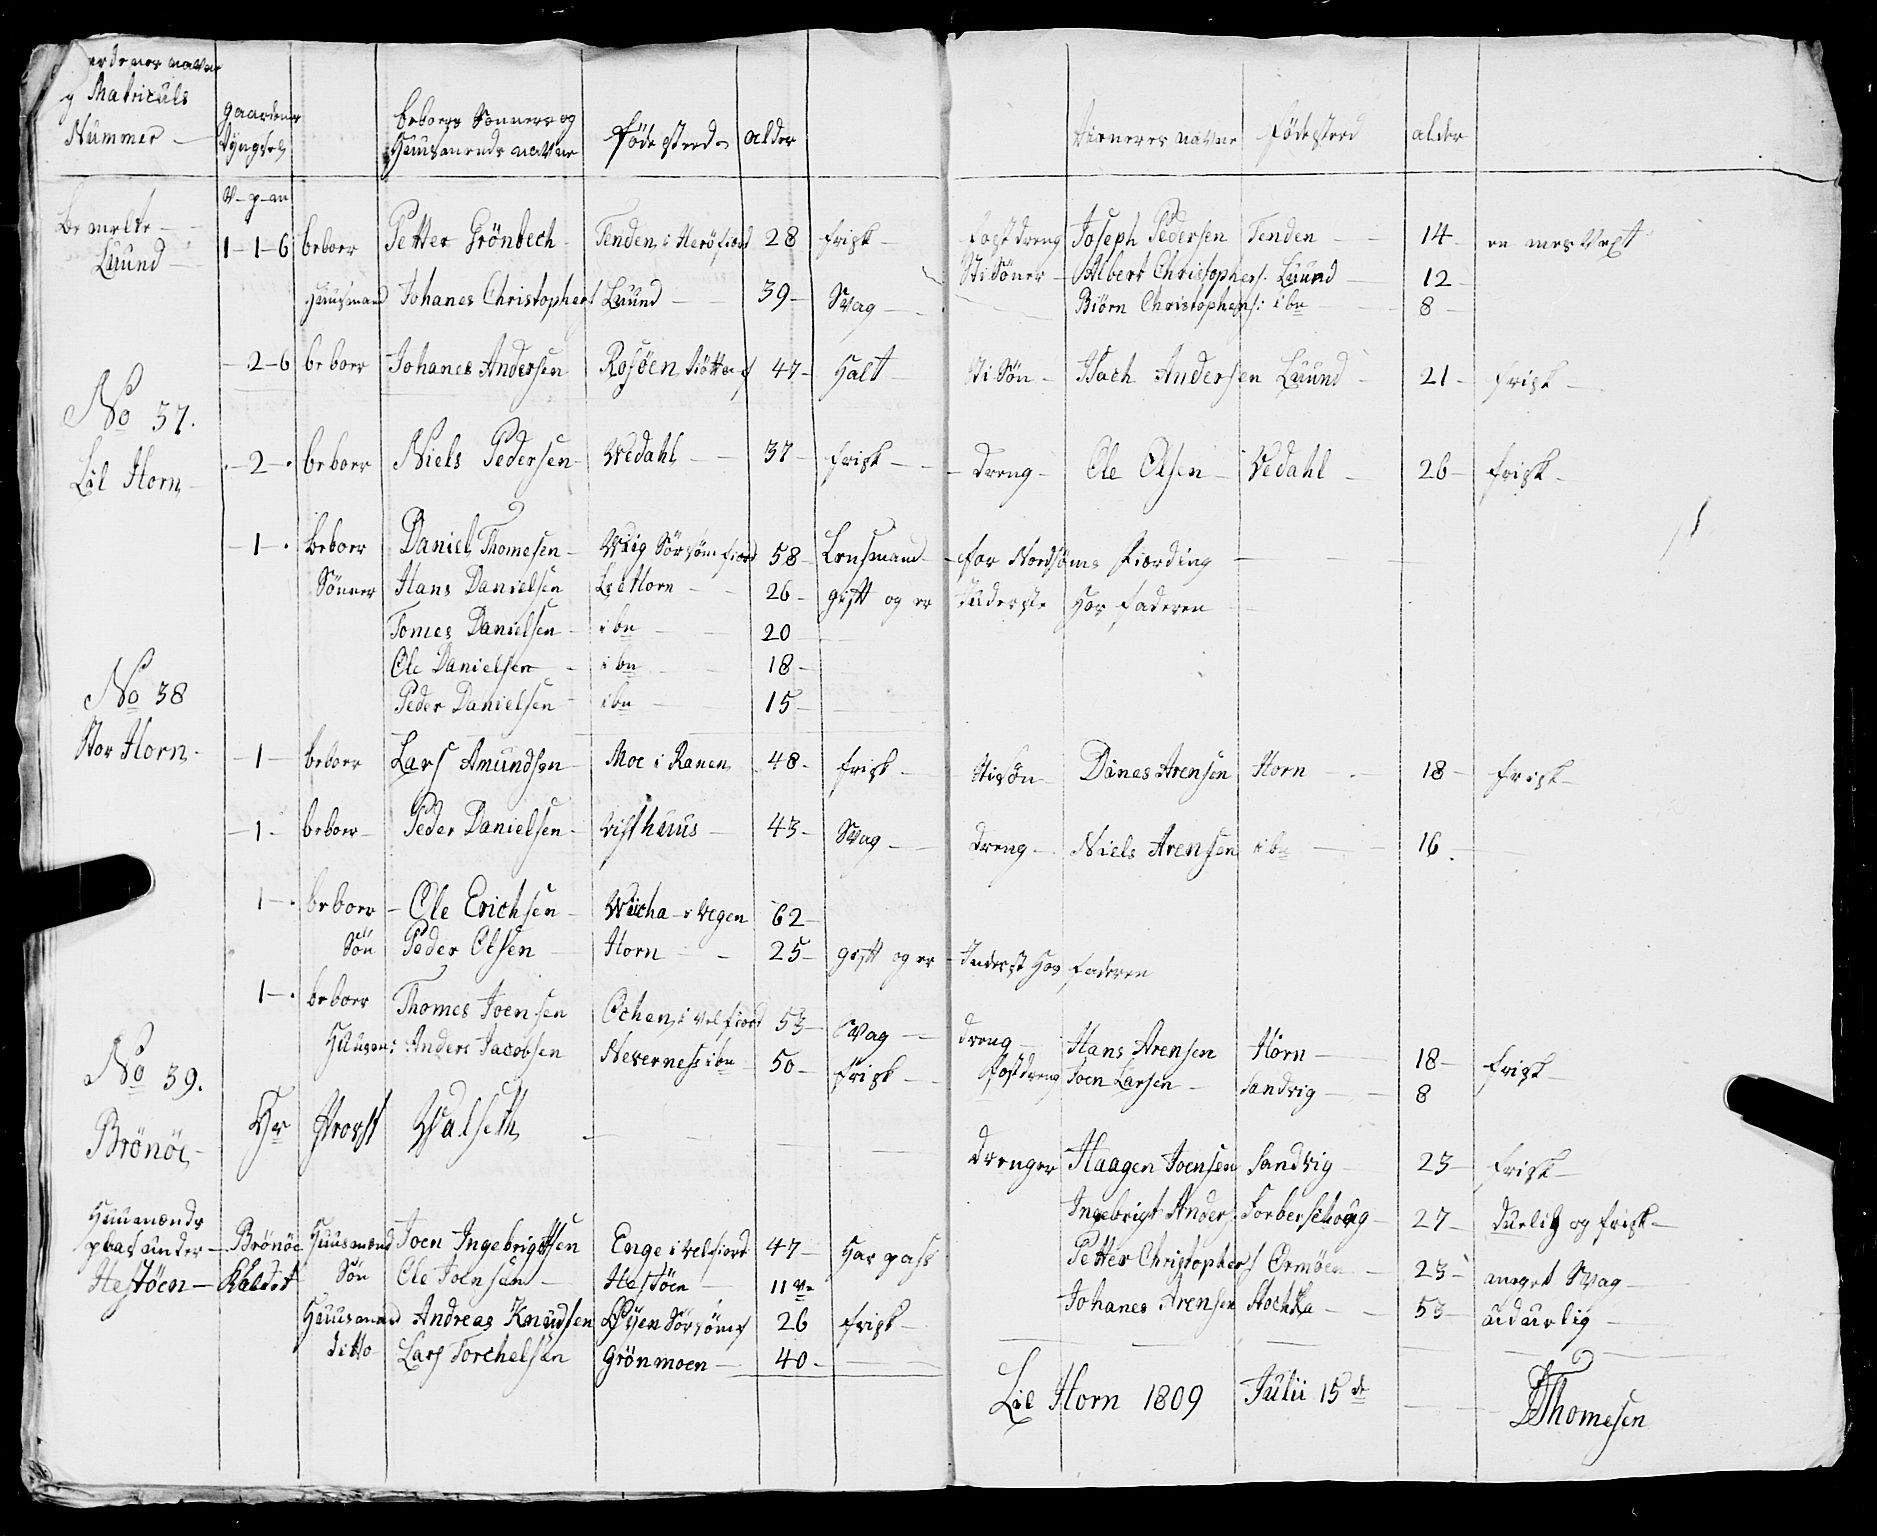 Matriculs Nummer — gaardens tyngsel beboers Sønners og Huusmænds navne føde sted alder tieneres navne fødested alder
V - p - m
bemelte Luund — 1-1-6 beboer Petter Grönbech Tenden i Heröfiord 28 frisk fost dreng Joseph Pedersen Tenden 14 er uvext
Huusmand Johanes Christophers Luund 39 Svag Sti Sönner Albert Christophers: Luund 12
Biörn Christophers: ibn 8
2-6 beboer Johanes Andersen Rosöen 47 Halt Sti Sön Isach Andersen Luund 21 frisk
No 37.
Lil Horn 2 beboer Niels Pedersen Vedahl 37 frisk dreng Ole Olsen Vedahl 26 frisk
1 beboer Daniel Thomesen Viig Sörsömfiord 58 Lensmand for Nordsöms fiording
Sönner Hans Danielsen Lil Horn 26 gift og er Inderste Hos faderen
Tomes Danielsen ibn 20
Ole Danielsen ibn 18
Peder Danielsen ibn 15
No 38
Stor Horn 1 beboer Lars Amundsen Moe i Ranen 48 frisk Stisön Dines Arensen Horn 18 frisk
1 beboer Peder Danielsen Visthuus 43 Svag dreng Niels Arensen ibn 16.
1 beboer Ole Erichsen Wicha i Vegen 62
Sön Peder Olsen Horn 25 gift og er Inderst Hos faderen
1 beboer Thomes Joensen Ochen i velfiord 53 Svag dreng Hans Arensen Horn 18 frisk
Huusm: Anders Jacobsen Neverness ibn 50 frisk fostdreng Joen Larsen Sandvig 8
No 39.
Brönöe Hr Provst Walseth drenger Haagen Joensen Sandvig 23 frisk
Ingebrigt Anders: Torberschoug 27 durlig og frisk
Huusmænds plas under Brönöe Huusmand Joen Ingebrigtsen Enge i velfiord 47 Har pass Petter Christophers Ormöen 23 meget Svag
Hestöen Kaldet Sön Ole Joensen Hestöen 11 Johanes Arensen Stochka 53 udurlig
Huusmand Andreas Knudsen Öyen Sörsömf 26 frisk
ditto Lars Torchelsen Grönmoen 40
Lil Horn 1809 Julii 15de
DThomesen